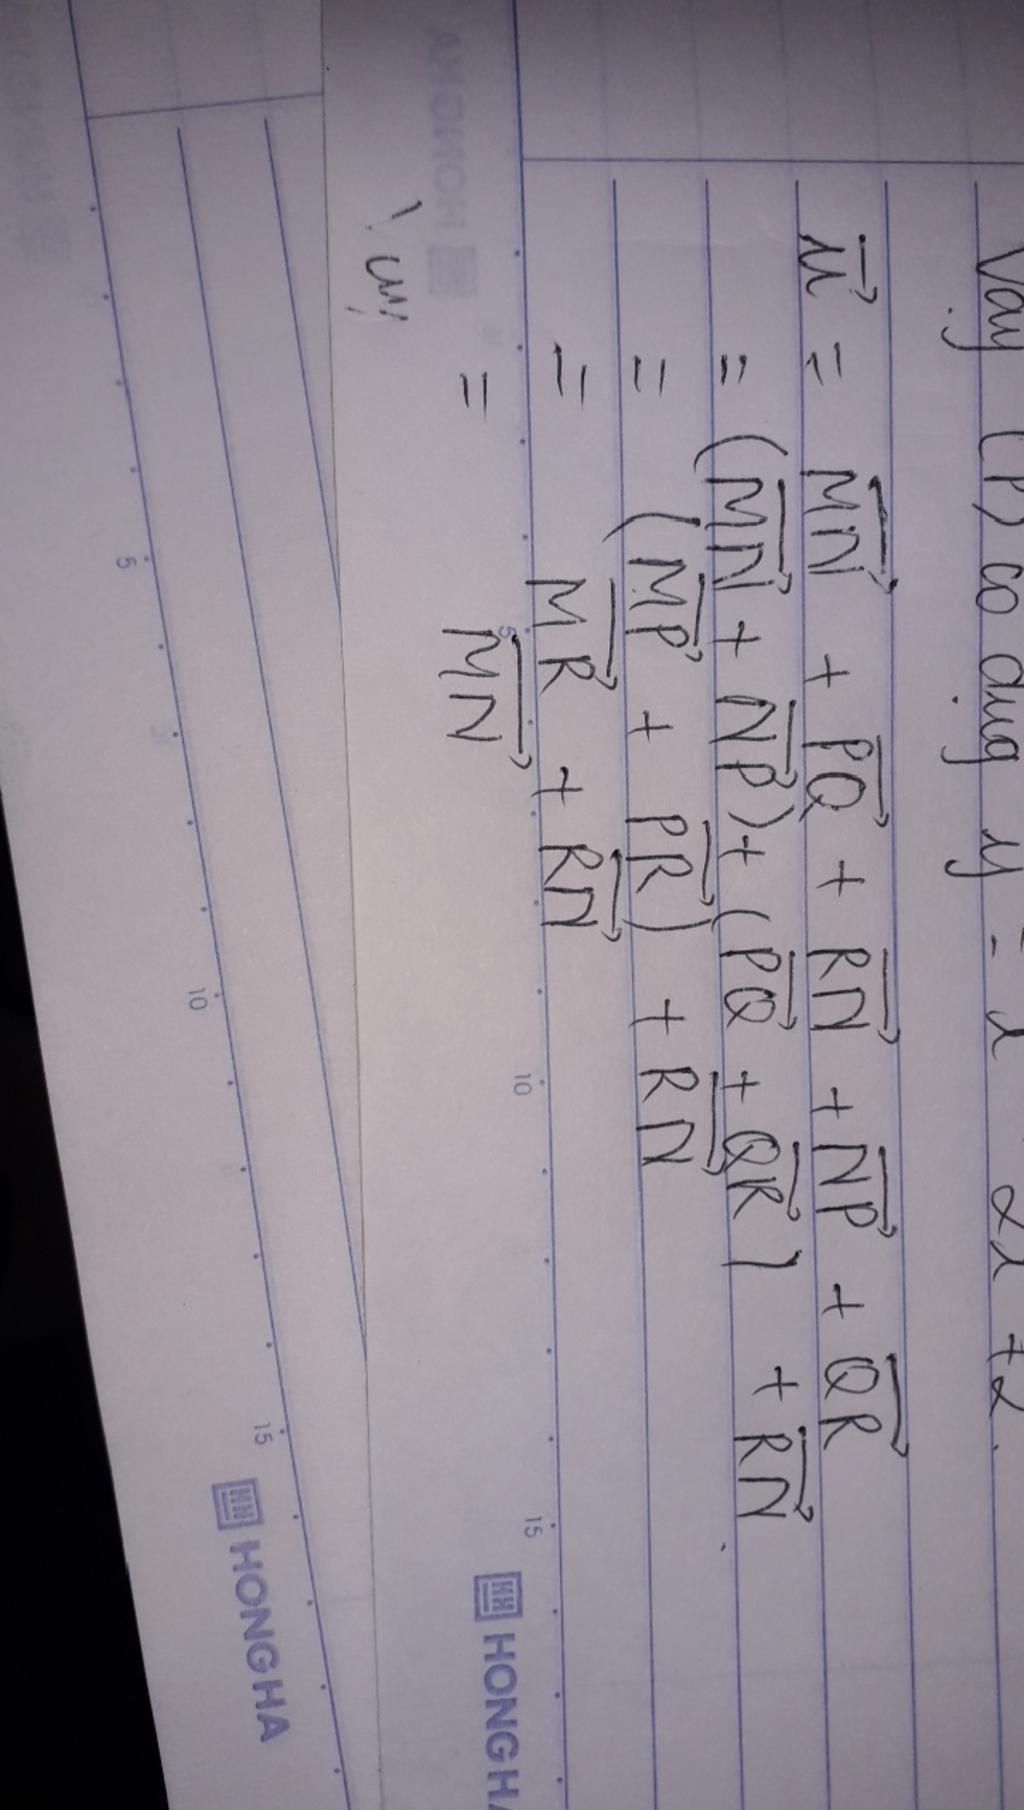 Vậy (P) có dạng y =
u⃗ = MN⃗ + PQ⃗ + RN⃗ + NP⃗ + QR⃗
= (MN⃗ + NP⃗) + (PQ⃗ + QR⃗) + RN⃗
= (MP⃗ + PR⃗) + RN⃗
= MR⃗ + RN⃗
= MN⃗
5 10 15
HONG HA
5 10 15
HONG HA